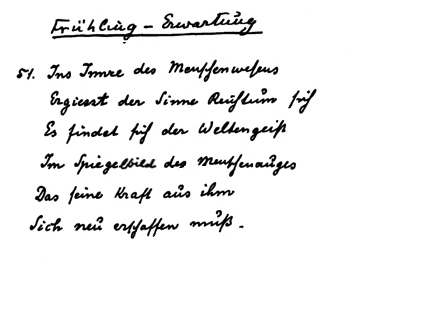 Frühling – Erwartung
51. Ins Innre des Menschenwesens
Ergiesst der Sinne Reichtum sich
Es findet sich der Weltengeist
Im Spiegelbild des Menschenauges
Das seine Kraft aus ihm
Sich neu erschaffen muß.